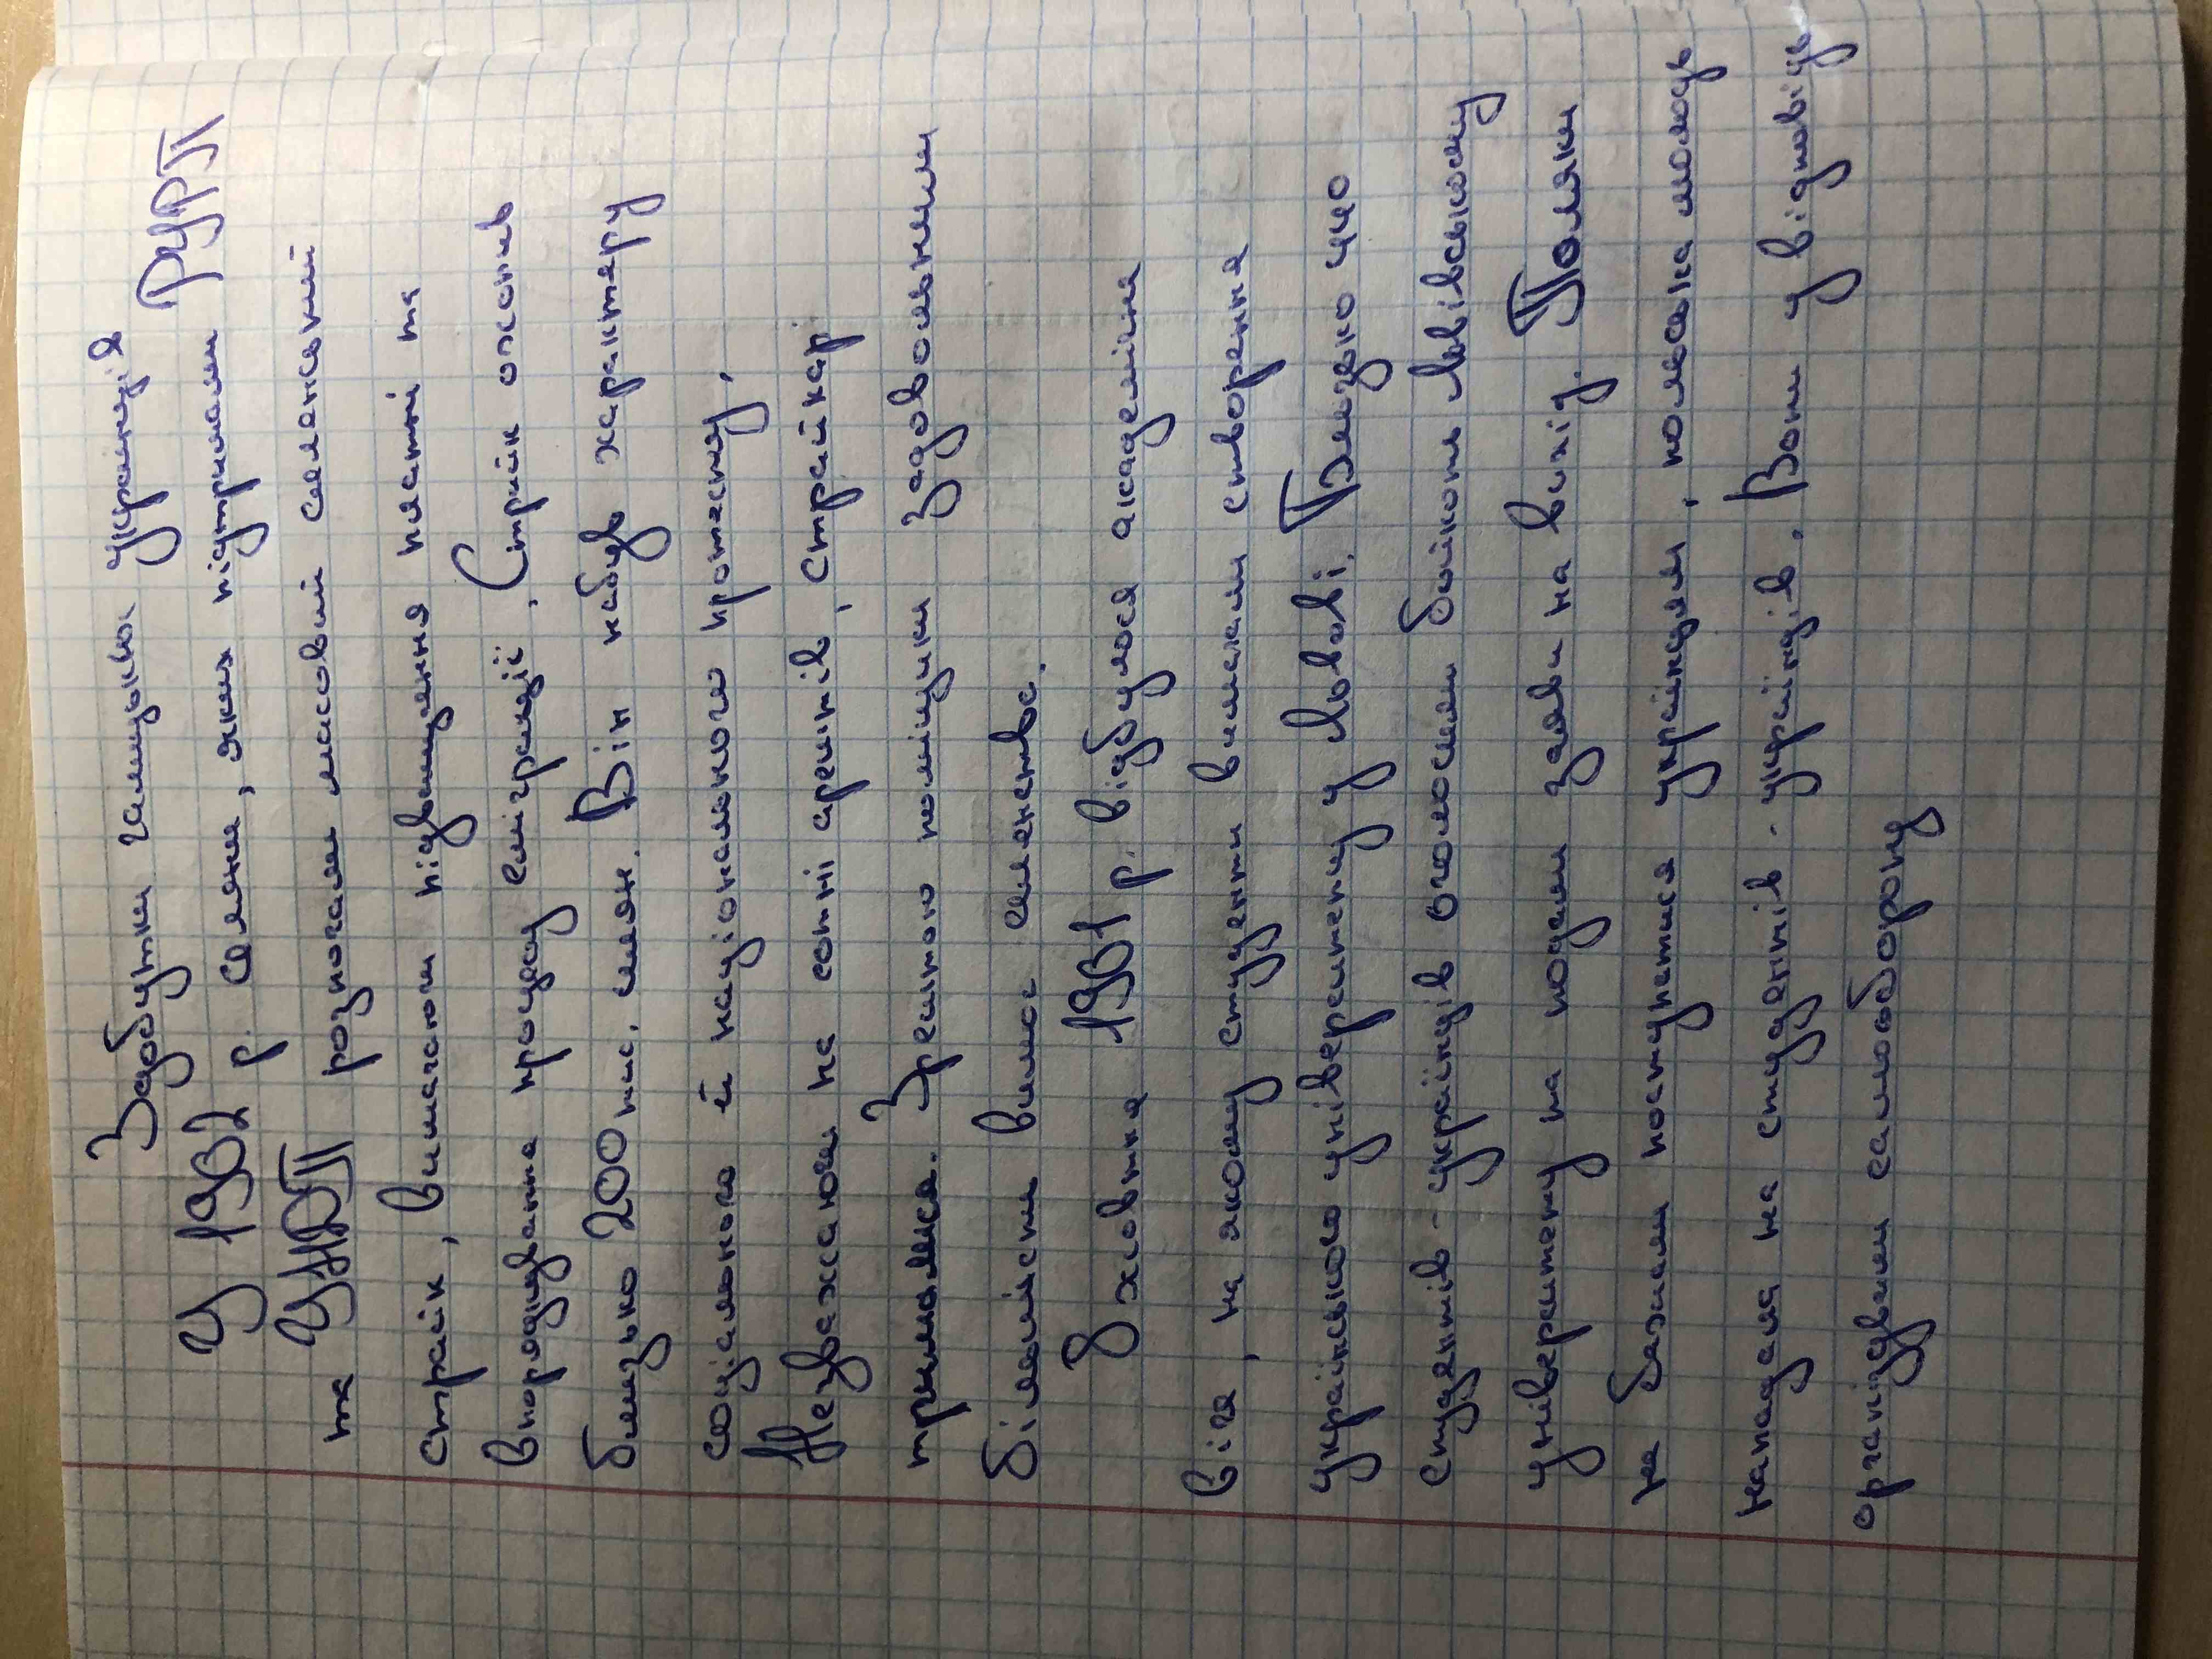 Здобутки галицьких українців
У 1902 р. селяни, яких підтримали РУРП
та УНДП розпочали масовий селянський
страйк, вимагаючи підвищення платні та
впорядкування процесу еміграції. Страйк охопив
близько 200 тис. селян. Він набув характеру
соціального й національного протесту.
Незважаючи на сотні арештів, страйкарі
трималися. Зрештою поміщики задовольнили
більшість вимог селянства.
8 жовтня 1901 р. відбулося академічне
віче, на якому студенти вимагали створення
українського університету у Львові. Близько 440
студентів-українців оголосили бойкот Львівському
університету та подали заяви на вихід. Поляки
не бажали поступатися українцям, польська молодь
нападала на студентів-українців. Вони у відповідь
організували самооборону